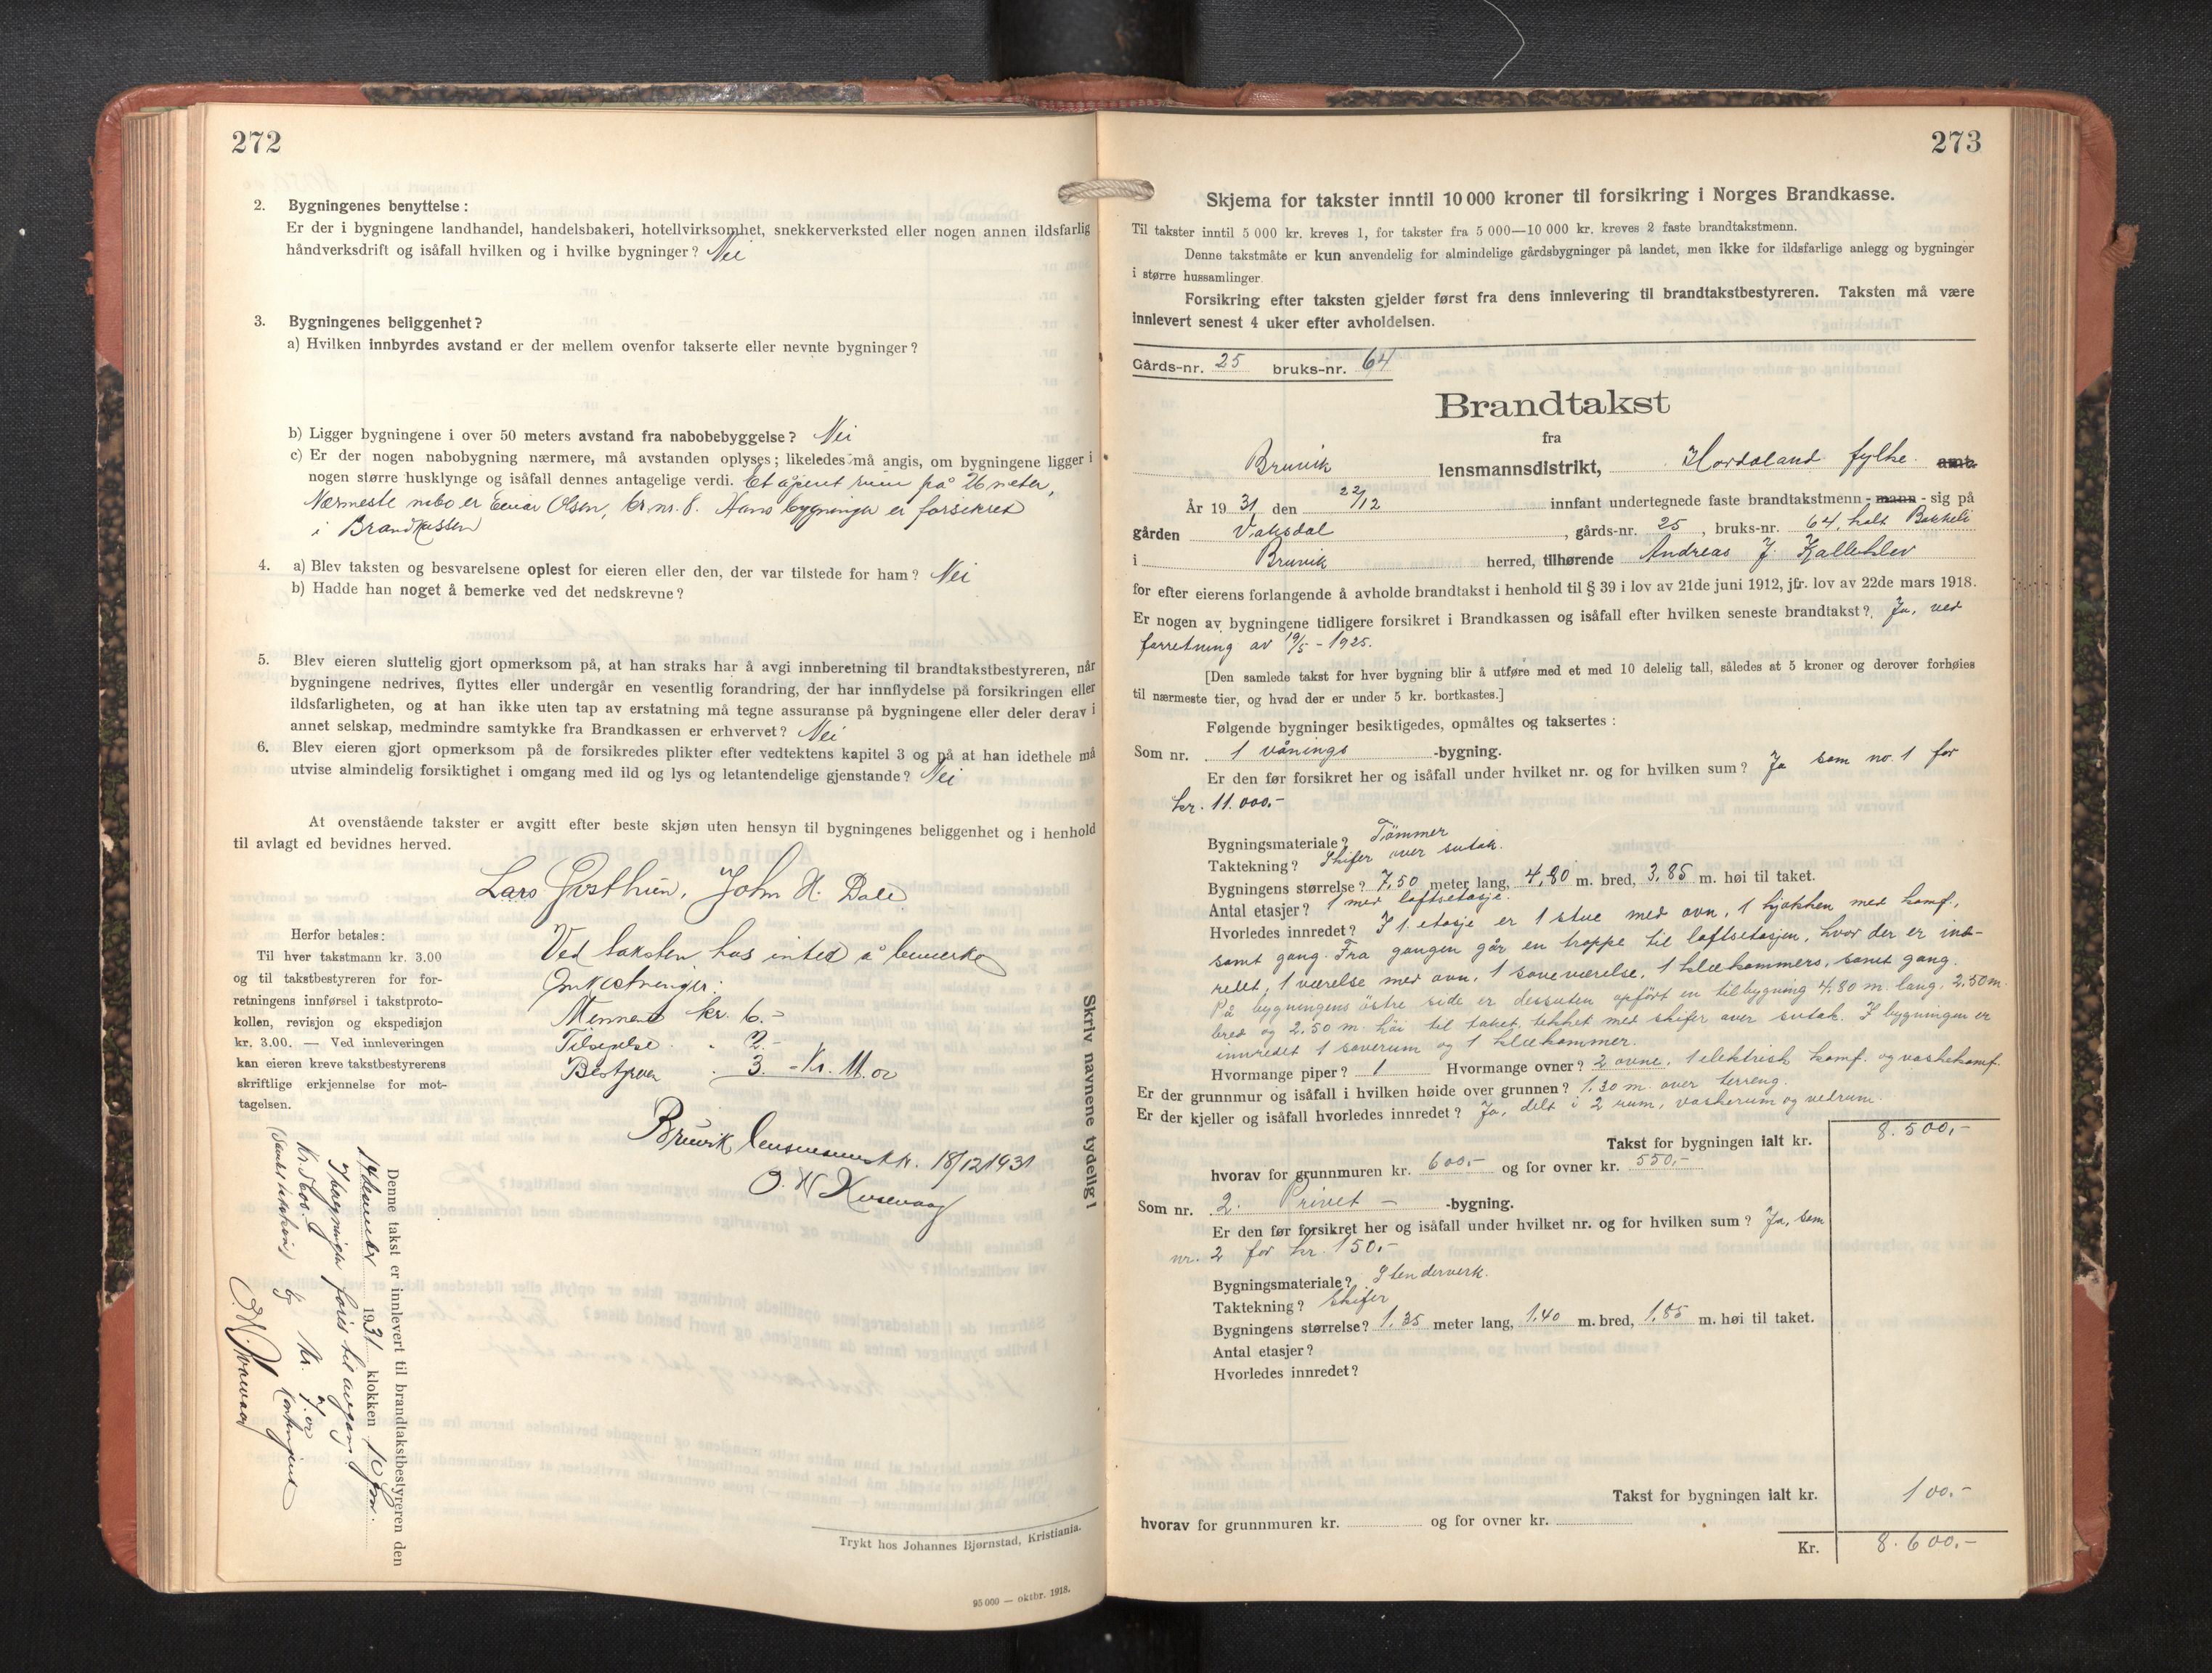 272
2. Bygningenes benyttelse:
Er der i bygningene landhandel, handelsbakeri, hotellvirksomhet, snekkerverksted eller nogen annen ildsfarlig
håndverksdrift og isåfall hvilken og i hvilke bygninger? Nei
3. Bygningenes beliggenhet?
a) Hvilken innbyrdes avstand er der mellem ovenfor takserte eller nevnte bygninger?
b) Ligger bygningene i over 50 meters avstand fra nabobebyggelse? Nei
c) Er der nogen nabobygning nærmere, må avstanden oplyses; likeledes må angis, om bygningene ligger i
nogen større husklynge og isåfall dennes antagelige verdi. Et åpent rum på 26 meter,
Nærmeste nabo er Einar Olsen, br.nr. 8. Hans bygninger er forsikret
i Brandkassen
4. a) Blev taksten og besvarelsene oplest for eieren eller den, der var tilstede for ham? Nei
b) Hadde han noget å bemerke ved det nedskrevne?
5. Blev eieren sluttelig gjort opmerksom på, at han straks har å avgi innberetning til brandtakstbestyreren, når
bygningene nedrives, flyttes eller undergår en vesentlig forandring, der har innflydelse på forsikringen eller
ildsfarligheten, og at han ikke uten tap av erstatning må tegne assuranse på bygningene eller deler derav i
annet selskap, medmindre samtykke fra Brandkassen er erhvervet? Nei
6. Blev eieren gjort opmerksom på de forsikredes plikter efter vedtektens kapitel 3 og på at han idethele må
utvise almindelig forsiktighet i omgang med ild og lys og letantendelige gjenstande? Nei
At ovenstående takster er avgitt efter beste skjøn uten hensyn til bygningenes beliggenhet og i henhold
til avlagt ed bevidnes herved.
Lars John H. Dale
Herfor betales:
Til hver takstmann kr. 3.00
og til takstbestyreren for for-
retningens innførsel i takstproto-
kollen, revisjon og ekspedisjon
kr. 3.00. — Ved innleveringen
kan eieren kreve takstbestyrerens
skriftlige erkjennelse for mot-
tagelsen.
Ved taksten has intet å bemerke
Omkostninger:
Mennene kr. 6.-
2.-
Bestyreren 3. - Kr. 11.00
Bruvik lensmannsktr. 18/12 1931
Skriv navnene tydelig!
Denne takst er innlevert til brandtakstbestyreren den
1931 klokken 10 fm.
Trykt hos Johannes Bjørnstad, Kristiania.
95 000 — oktbr. 1918.
273
Skjema for takster inntil 10 000 kroner til forsikring i Norges Brandkasse.
Til takster inntil 5 000 kr. kreves 1, for takster fra 5 000—10 000 kr. kreves 2 faste brandtakstmenn.
Denne takstmåte er kun anvendelig for almindelige gårdsbygninger på landet, men ikke for ildsfarlige anlegg og bygninger
i større hussamlinger.
Forsikring efter taksten gjelder først fra dens innlevering til brandtakstbestyreren. Taksten må være
innlevert senest 4 uker efter avholdelsen.
Gårds-nr. 25 bruks-nr. 64
Brandtakst
fra
Bruvik lensmannsdistrikt, Hordaland fylke. amt.
År 1931 den 22/12 innfant undertegnede faste brandtakstmenn - mann - sig på
gården Vaksdal, gårds-nr. 25, bruks-nr. 64, kalt Bakkeli
i Bruvik herred, tilhørende Andreas J. Kalleklev
for efter eierens forlangende å avholde brandtakst i henhold til § 39 i lov av 21de juni 1912, jfr. lov av 22de mars 1918.
Er nogen av bygningene tidligere forsikret i Brandkassen og isåfall efter hvilken seneste brandtakst? Ja, ved
forretning av 19/5 - 1925.
[Den samlede takst for hver bygning blir å utføre med et med 10 delelig tall, således at 5 kroner og derover forhøies
til nærmeste tier, og hvad der er under 5 kr. bortkastes.]
Følgende bygninger besiktigedes, opmåltes og taksertes:
Som nr. 1 vånings -bygning.
Er den før forsikret her og isåfall under hvilket nr. og for hvilken sum? Ja som no. 1 for
kr. 11.000.-
Bygningsmateriale? Tømmer
Taktekning? Skifer over sutak.
Bygningens størrelse? 7,50 meter lang, 4,80 m. bred, 3,85 m. høi til taket.
Antal etasjer? 1 med loftsetasje.
Hvorledes innredet? I 1. etasje er 1 stue med ovn, 1 kjøkken med komf.,
samt gang. Fra gangen går en trappe til loftsetasjen, hvor der er inn-
redet, 1 værelse med ovn, 1 soveværelse, 1 klækammers, samt gang.
På bygningens østre side er dessuten opført en tilbygning 4,80 m. lang, 2,50 m.
bred og 2,50 m. høi til taket, tekket med skifer over sutak. I bygningen er
innredet 1 soverum og 1 klækammer.
Hvormange piper? 1 Hvormange ovner? 2 ovne, 1 elektrisk komf. og vaskekomf.
Er der grunnmur og isåfall i hvilken høide over grunnen? 1.30 m. over terreng.
Er der kjeller og isåfall hvorledes innredet? Ja, delt i 2 rum, vaskerum og vedrum.
Takst for bygningen ialt kr. 8.500,-
hvorav for grunnmuren kr. 600,- og for ovner kr. 550,-
Som nr. 2. Privet - -bygning.
Er den før forsikret her og isåfall under hvilket nr. og for hvilken sum? Ja, som
nr. 2 for kr. 150.-
Bygningsmateriale? Stenderverk.
Taktekning? Skifer
Bygningens størrelse? 1.35 meter lang, 1.40 m. bred, 1.85 m. høi til taket.
Antal etasjer?
Hvorledes innredet?
Takst for bygningen ialt kr. 100.-
hvorav for grunnmuren kr. og for ovner kr.
Kr. 8.600.-